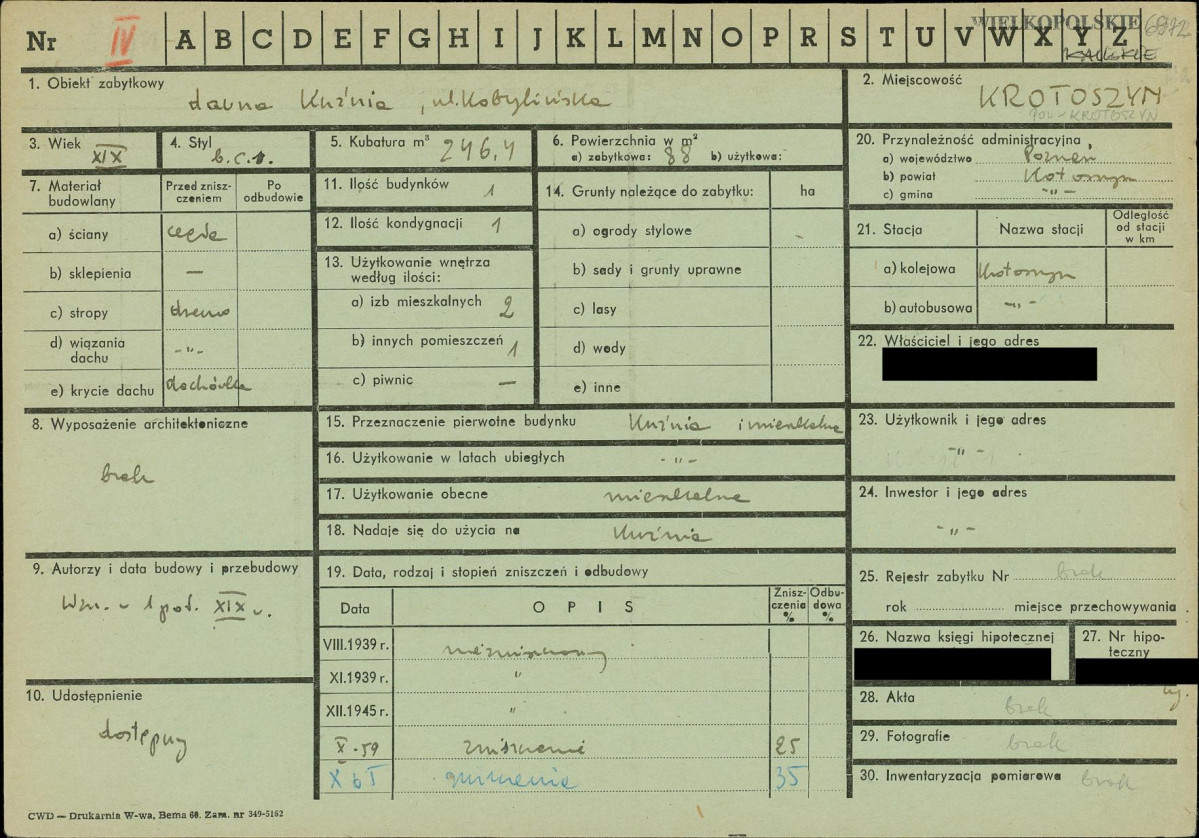 Nr IV A B C D E F G H I J K L M N O P R S T U V W X Y Z
WIELKOPOLSKIE 6972
KALISKIE
1. Obiekt zabytkowy
dawna Kuźnia, ul. Kobylińska
2. Miejscowość
KROTOSZYN
pow - KROTOSZYN
3. Wiek
XIX
4. Styl
b.c.s.
5. Kubatura m³ 246,4
6. Powierzchnia w m²
a) zabytkowa: 88 b) użytkowa:
20. Przynależność administracyjna
a) województwo Poznań
b) powiat Krotoszyn
c) gmina -"-
7. Materiał budowlany
Przed zniszczeniem
Po odbudowie
a) ściany cegła
b) sklepienia —
c) stropy drewno
d) wiązania dachu -"-
e) krycie dachu dachówka
11. Ilość budynków 1
12. Ilość kondygnacji 1
13. Użytkowanie wnętrza według ilości:
a) izb mieszkalnych 2
b) innych pomieszczeń 1
c) piwnic —
14. Grunty należące do zabytku:
ha
a) ogrody stylowe -
b) sady i grunty uprawne
c) lasy
d) wody
e) inne
21. Stacja
Nazwa stacji
Odległość od stacji w km
a) kolejowa Krotoszyn
b) autobusowa -"-
22. Właściciel i jego adres
8. Wyposażenie architektoniczne
brak
15. Przeznaczenie pierwotne budynku Kuźnia i mieszkalne
16. Użytkowanie w latach ubiegłych -"-
17. Użytkowanie obecne mieszkalne
18. Nadaje się do użycia na Kuźnia
23. Użytkownik i jego adres
-"-
24. Inwestor i jego adres
-"-
9. Autorzy i data budowy i przebudowy
Wzn. w 1 poł. XIX w.
19. Data, rodzaj i stopień zniszczeń i odbudowy
Data
OPIS
Zniszczenia %
Odbudowa %
VIII.1939 r. niezniszczony
XI.1939 r. "
XII.1945 r. "
X-59 zniszczenie 25
X 61 zniszczenie 35
25. Rejestr zabytku Nr brak
rok miejsce przechowywania
26. Nazwa księgi hipotecznej
27. Nr hipoteczny
10. Udostępnienie
dostępny
28. Akta brak
29. Fotografie brak
30. Inwentaryzacja pomiarowa brak
CWD — Drukarnia W-wa, Bema 60. Zam. nr 349-5162